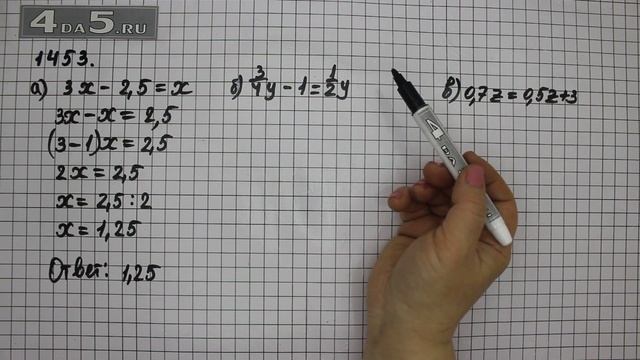 4DA5.RU
1453.
а) 3x - 2,5 = x
3x - x = 2,5
(3-1)x = 2,5
2x = 2,5
x = 2,5 : 2
x = 1,25
Ответ: 1,25
б) 3/4 y - 1 = 1/2 y
в) 0,7z = 0,5z + 3
4 DA